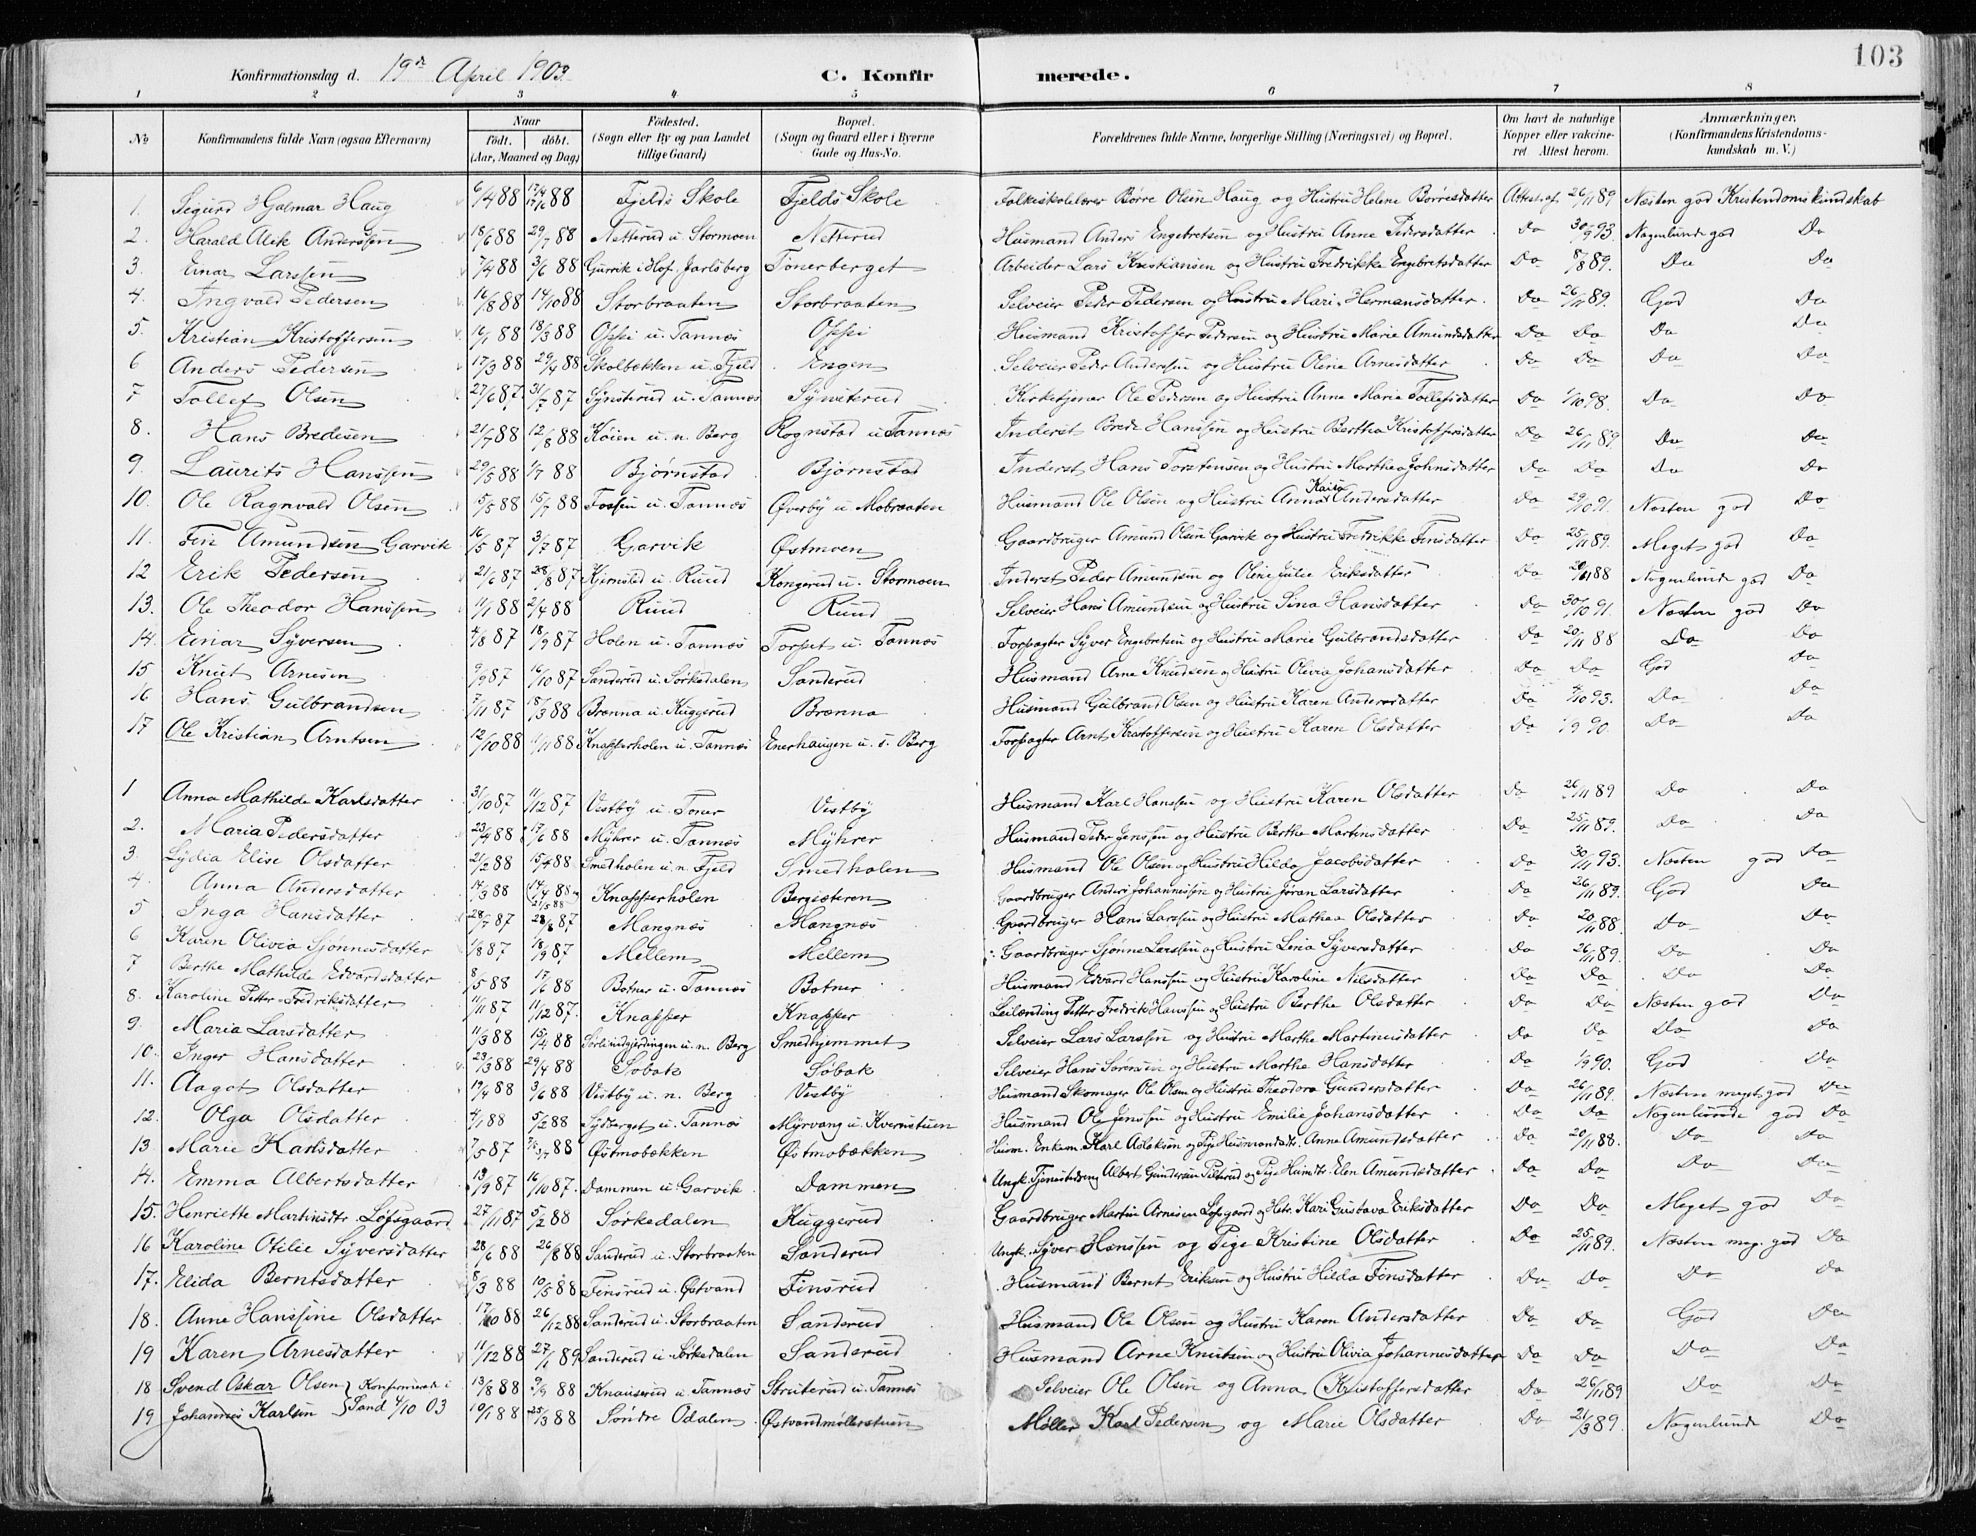 103
Konfirmationsdag d. 19de April 1903. C. Konfir merede.
1 2 3 4 5 6 7 8
No Konfirmandens fulde Navn (ogsaa Efternavn) Naar Født. døbt. (Aar, Maaned og Dag) Fødested. (Sogn eller By og paa Landet tillige Gaard) Bopæl. (Sogn og Gaard eller i Byerne Gade og Hus-No. Forældrenes fulde Navne, borgerlige Stilling (Næringsvei) og Bopæl. Om havt de naturlige Kopper eller vakcineret. Attest herom. Anmærkninger. (Konfirmandens Kristendomskundskab m. V.)
1. Sigurd Hjalmar Haug 6/4 88 17/6 88 Fjelds Skole Fjelds Skole Folkeskolelærer Børre Olsen Haug og Hustru Helene Børresdatter Attest af 26/11 89 Næsten god Kristendomskundskab
2. Harald Alik Anderssen 18/6 88 29/7 88 Netterud u. Stormoen Netterud Husmand Anders Engebretsen og Hustru Anne Pedersdatter Do 30/9 93. Nogenlunde god Do
3. Einar Larssen 7/4 88 3/6 88 Gurrik i Hof. Jarlsberg Tønerberget Arbeider Lars Kristiansen og Hustru Fredrikke Engebretsdatter Do 8/8 89. Do Do
4. Ingvald Pedersen 16/8 88 14/10 88 Storbraaten Storbraaten Selveier Peder Pedersen og Hustru Mari Hermansdatter. Do 26/11 89. God Do
5. Kristian Kristoffersen 19/1 88 18/3 88 Oppi u. Tannæs Oppi Husmand Kristoffer Pedersen og Hustru Marie Amundsdatter Do Do Do Do
6 Anders Pedersen 17/3 88 29/4 88 Skolbækken u. Fjeld Engen Selveier Peder Anderssen og Hustru Oline Arnesdatter Do Do Do Do
7 Tollef Olsen 27/6 87. 31/7 87 Synsterud u. Tannæs Synsterud Kirketjener Ole Pedersen og Hustru Anne Marie Tollefsdatter Do 1/10 98. Do Do
8. Hans Bredesen 21/7 88 12/8 88 Køien u. n. Berg Rognstad u Tannæs Inderst Brede Hanssen og Hustru Bertha Kristoffersdatter Do 26/11 89. Do Do
9. Laurits Hanssen 29/5 88 1/7 88 Bjørnstad Bjørnstad Inderst Hans Torstensen og Hustru Marthea Johnsdatter Do Do Do Do
10. Ole Ragnvald Olsen 5/5 88 15/7 88 Fossen u. Tannæs Øverby u. Mobraaten Husmand Ole Olsen og Hustru Anna Kaisa Andersdatter Do 29/10 91. Næsten god Do
11. Fin Amundsen Garvik 16/5 87 3/7 87 Garvik Østmoen Gaardbruger Amund Olsen Garvik og Hustru Fredrikke Finsdatter Do 25/11 89. Meget god Do
12 Erik Pedersen 21/6 87 28/8 87 Kjernstad u. Ruud Kongerud u. Stormoen Inderst Peder Amundsen og Oline Julie Eriksdatter Do 20/11 88 Nogenlunde god Do
13. Ole Theodor Hanssen 11/1 88 2/4 88 Ruud Ruud Selveier Hans Amundsen og Hustru Sina Hansdatter Do 30/10 91. Næsten god Do
14. Einar Syversen 4/8 87 18/9 87 Holen u. Tannæs Torpet u. Tannæs Forpagter Syver Engebretsen og Hustru Marie Gulbrandsdatter Do 20/11 88 Do Do
15 Knut Arnesen 9/9 87 16/10 87 Sanderud u. Sørkedalen Sanderud Husmand Arne Knudsen og Hustru Olivia Johansdatter Do Do God Do
16 Hans Gulbrandsen 7/11 87 18/3 88 Brænna u. Kuggerud Brænna Husmand Gulbrand Olsen og Hustru Karen Andersdatter Do 4/10 93. Do Do
17 Ole Kristian Arntsen 12/10 88 11/11 88 Knapperholen u. Tannæs Enerhaugen u. s. Berg Forpagter Arnt Kristoffersen og Hustru Karen Olsdatter Do 1/9 90. Do Do
1 Anna Mathilde Karlsdatter 31/10 87 11/12 87 Vestby u. Toner Vestby Husmand Karl Hanssen og Hustru Karen Olsdatter Do 26/11 89 Do Do
2. Maria Pedersdatter 23/4 88 17/6 88 Myhrer u. Tannæs Myhrer Husmand Peder Jenssen og Hustru Berthe Martinsdatter Do 25/11 89. Do Do
3. Lydia Elise Olsdatter 21/2 88 15/4 88 Smedholen u. n. Fjeld Smedholen Husmand Ole Olsen og Hustru Hilda Jacobsdatter Do 30/11 93. Næsten god Do
4. Anna Andersdatter 14/3 88 Knapperholen Bergsæteren Gaardbruger Anders Johannessen og Hustru Jøran Larsdatter Do 26/11 89. God Do
5 Inga Hansdatter 28/7 87 28/8 87 Mangnæs Mangnæs Gaardbruger Hans Larssen og Hustru Mathea Olsdatter Do 20/11 88. Do Do
6 Karen Olivia Sjønnesdatter 1/8 87 18/9 87 Mellem Mellem Gaardbruger Sjønne Larssen og Hustru Lina Syversdatter Do 26/11 89. Do Do
7 Berthe Mathilde Edvardsdatter 8/5 88 17/6 88 Botner u. Tannæs Botner Husmand Edvard Hanssen og Hustru Karoline Nilsdatter Do Do Do Do
8. Karoline Petter-Fredriksdatter 11/11 87 11/12 87. Knapper Knapper Leilænding Petter Fredrik Hanssen og Hustru Berthe Olsdatter Do Do Næsten god Do
9. Maria Larsdatter 11/3 88 15/4 88 Sørlindgjerdingen u. n. Berg Smedhjemmet Selveier Lars Larssen og Hustru Marthe Martinusdatter Do Do Do Do
10. Inger Hansdatter 23/3 88 29/4 88 Søbak Søbak Selveier Hans Sørensen og Hustru Marthe Hansdatter Do 1/9 90. God Do
11. Aagot Olsdatter 19/4 88 3/6 88 Vestby u. n. Berg Vestby Husmand Skomager Ole Olsen og Hustru Theodora Gundersdatter Do 26/11 89. Næsten meget god Do
12. Olga Olsdatter 4/1 88 5/2 88 Sydberget u. Tannæs Myrvang u. Kvernstuen Husmand Ole Jenssen og Hustru Emilie Johansdatter Do Do Nogenlunde god Do
13. Marie Karlsdatter 7/5 87 88 Østmobækken Østmobækken Husm. Enkem. Karl Aslaksen og Pige Husmandsdtr. Anne Amundsdatter Do 20/11 88. Do Do
14. Emma Albertsdatter 13/9 87 16/10 87. Dammen u Garvik Dammen Ungk. Tjenestedreng Albert Gundersen og Pige Husmdtr. Elen Amundsdatter Do Do Do Do
15. Henriette Martinsdtr Løfsgaard 27/11 87 5/2 88 Sørkedalen Kuggerud Gaardbruger Martin Arnesen Løfsgaard og Hstr. Kari Gustava Eriksdatter Do Do Meget god Do
16 Karoline Otilie Syversdatter 28/6 88 26/8 88 Sanderud u. Storbraaten Sanderud Ungk. Syver Hanssen og Pige Kristine Olsdatter Do 25/11 89. Næsten meg. god Do
17. Elida Berntsdatter 8/3 88 10/5 88 Finsrud u. Østvand Finsrud Husmand Bernt Eriksen og Hustru Hilda Finsdatter Do Do Do Do
18. Anne Hanssine Olsdatter 17/10 88 26/12 88 Sanderud u. Storbraaten Sanderud Husmand Ole Olsen og Hustru Karen Andersdatter Do Do God Do
19 Karen Arnesdatter 11/12 88 27/1 89 Sanderud u. Sørkedalen Sanderud Husmand Arne Knutsen og Hustru Olivia Johannesdatter Do Do Do Do
18 Svend Oskar Olsen } Konfirmerede i 13/8 88 9/9 88 Knauserud u. Tannæs Struterud u. Tannæs Selveier Ole Olsen og Anna Kristoffersdatter Do 26/11 89 Do Do
19 Johannes Karlsen } Sand 4/10 03 19/1 88 25/3 88 Søndre Odalen Østvandmøllerstuen Møller Karl Pedersen og Marie Olsdatter Do 21/3 89. Nogenlunde Do